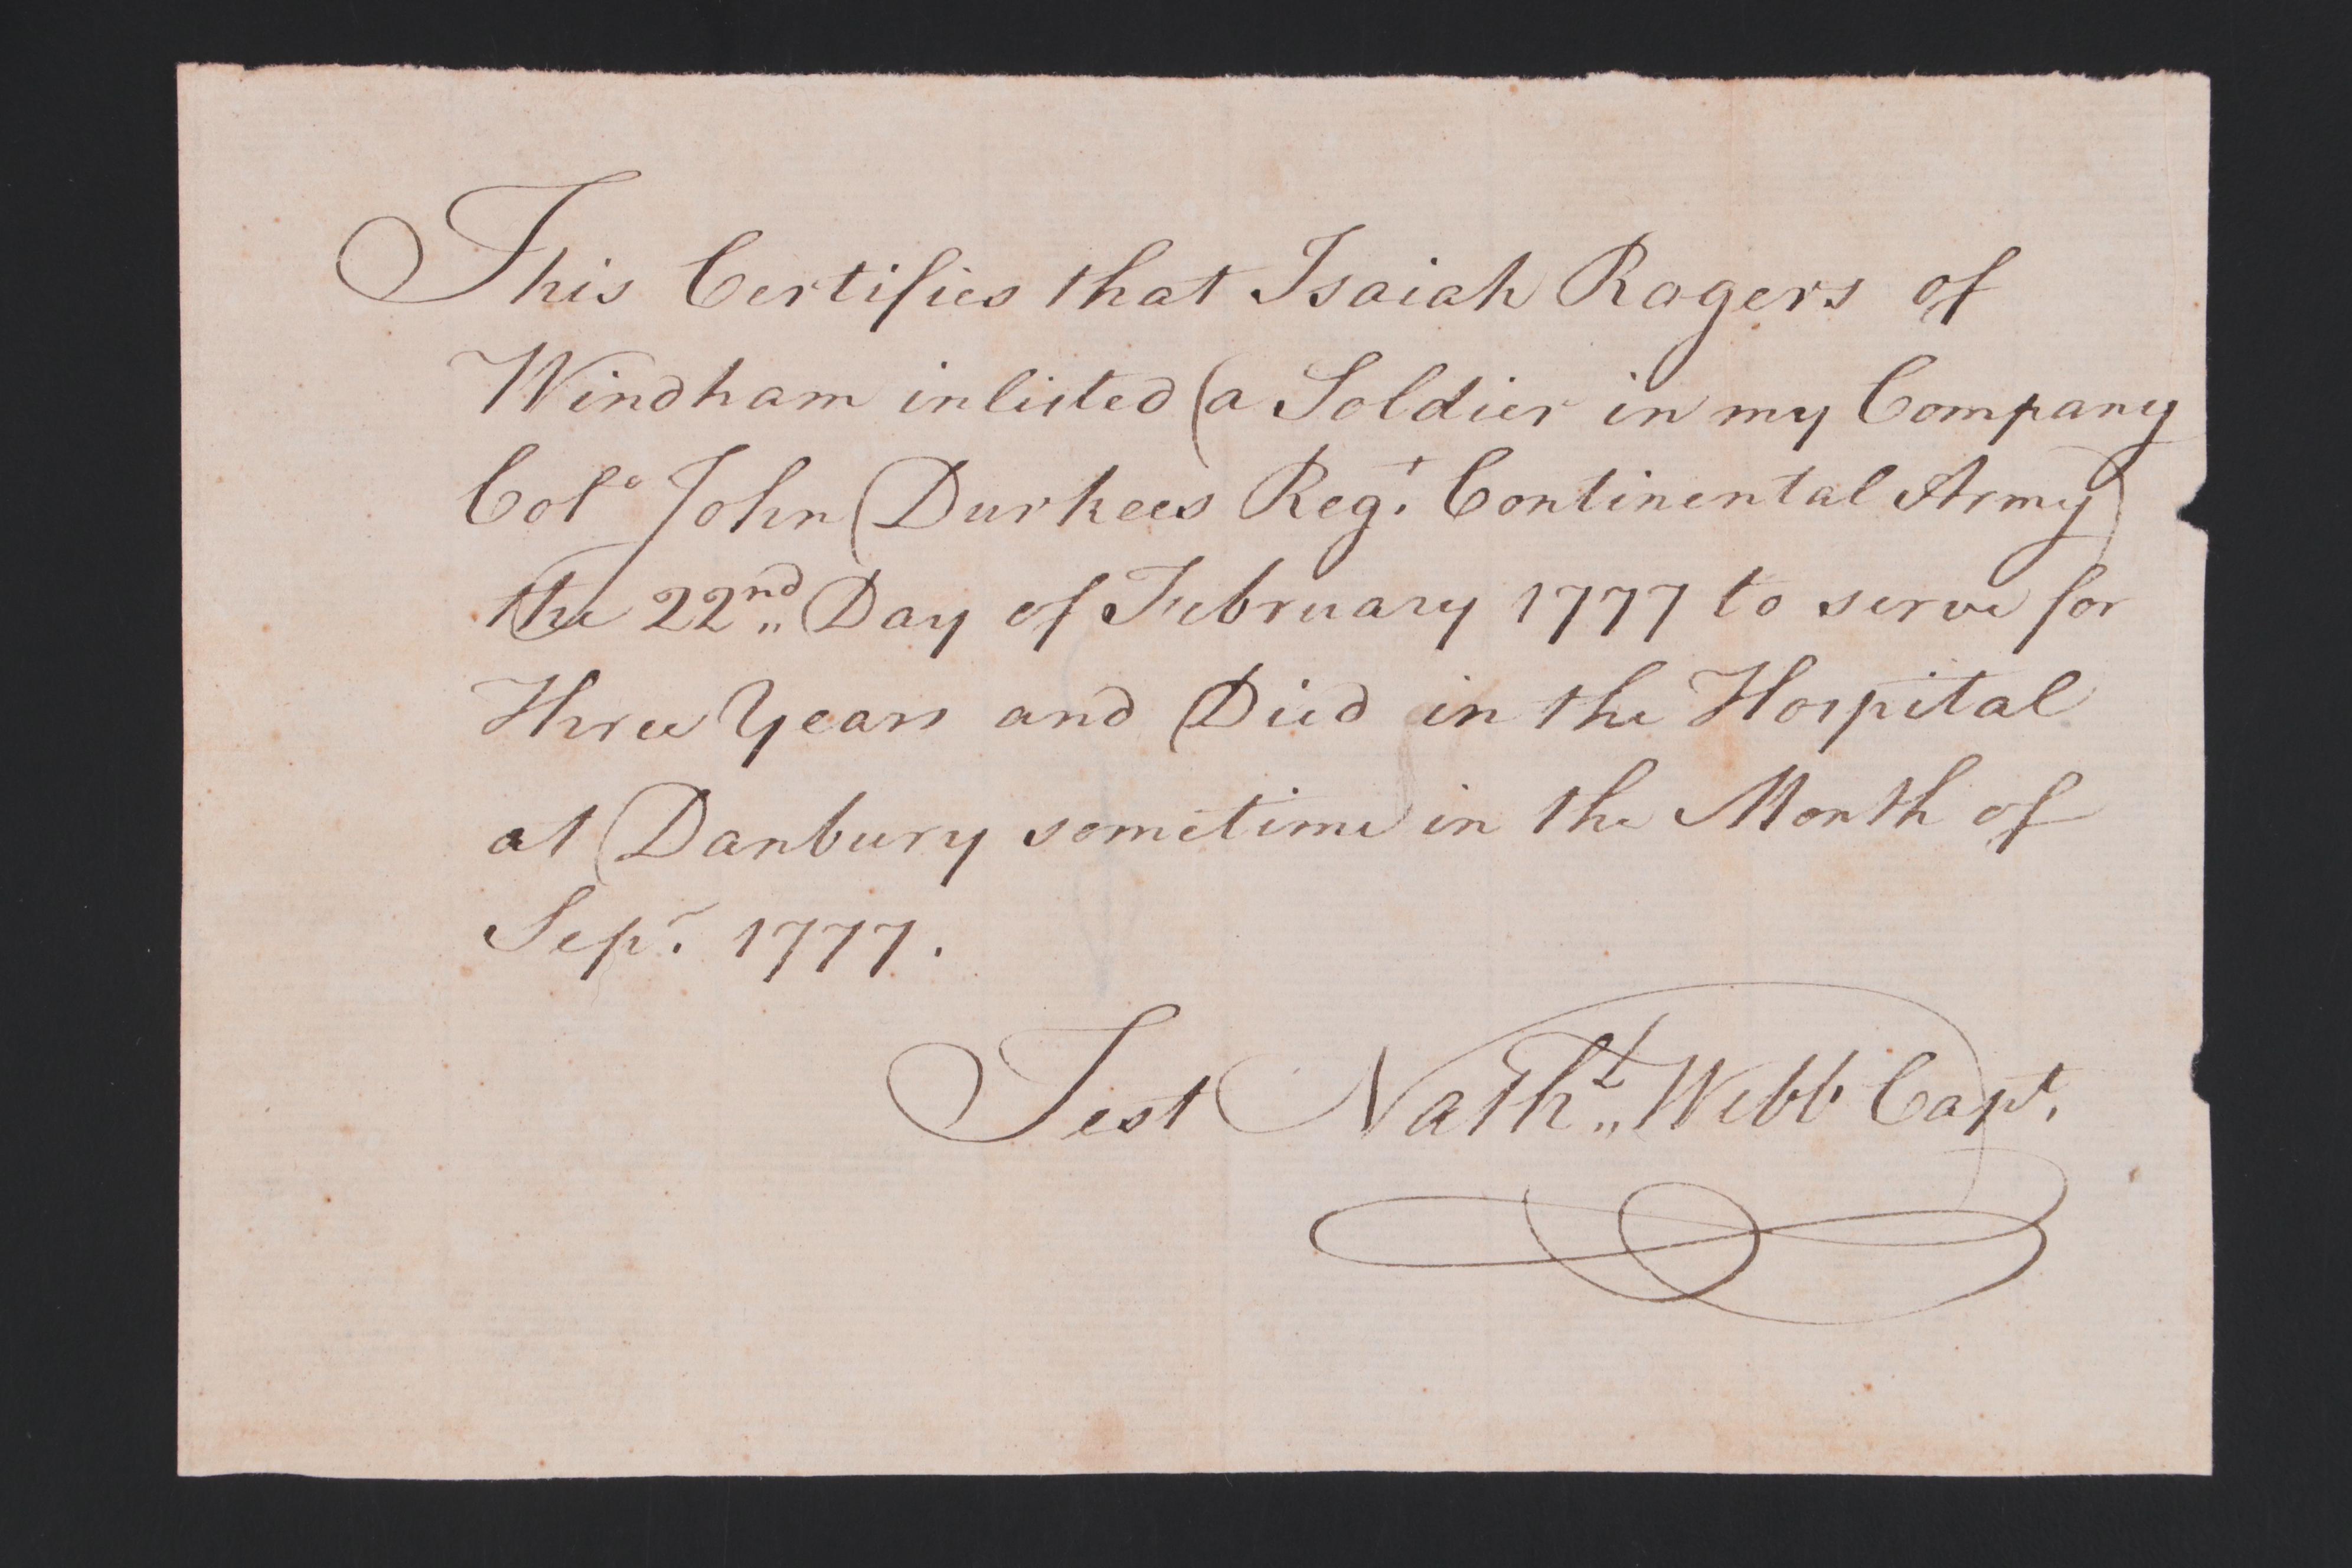 This Certifies that Isaiah Rogers of
Windham inlisted a Soldier in my Company
Colo John Durkees Regt. Continental Army
the 22nd Day of February 1777 to serve for
Three Years and Died in the Hospital
at Danbury sometime in the Month of
Sepr. 1777.
Test Nathl Webb Capt.